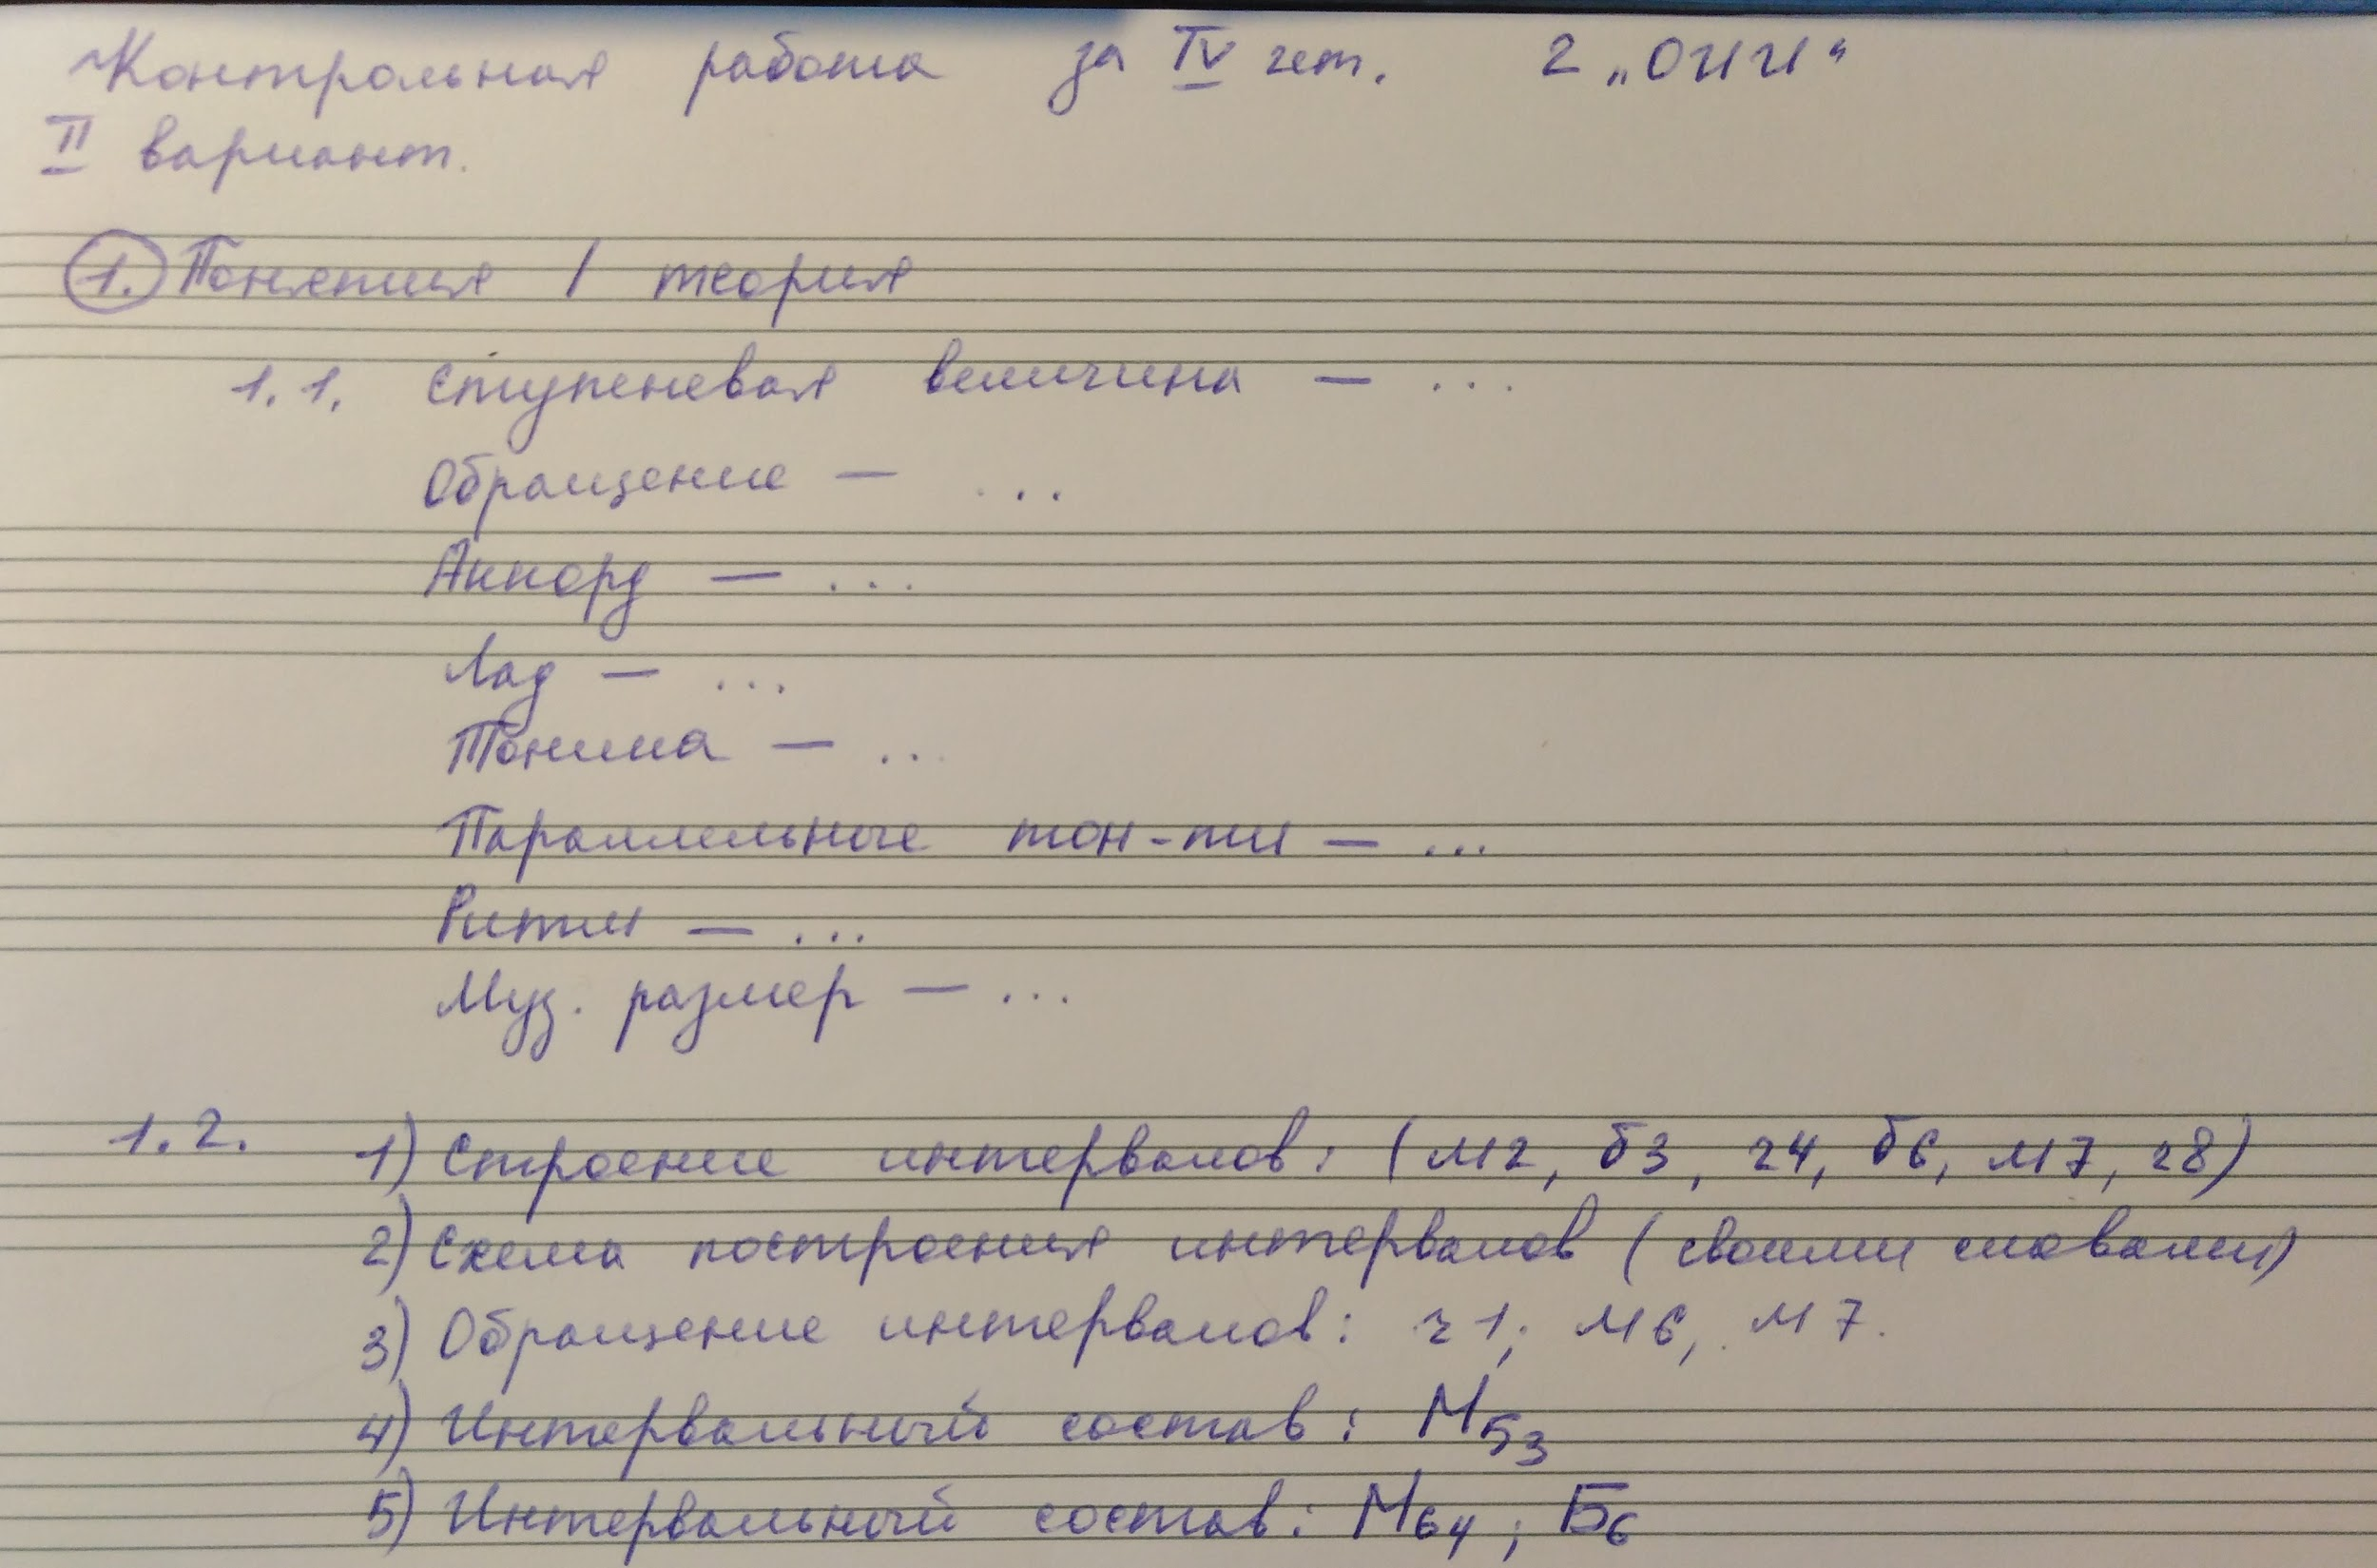 Контрольная работа за IV чет. 2 „ОИИ“
II вариант.
1. Понятия / теория
1.1. Ступеневая величина — ...
Обращение — ...
Аккорд — ...
Лад — ...
Тоника — ...
Параллельные тон-ти — ...
Ритм — ...
Муз. размер — ...
1.2. 1) Строение интервалов: (м2, б3, ч4, б6, м7, ч8)
2) Схема построения интервалов (своими словами)
3) Обращение интервалов: ч1, м6, м7.
4) Интервальный состав: М53
5) Интервальный состав: М64; Б6